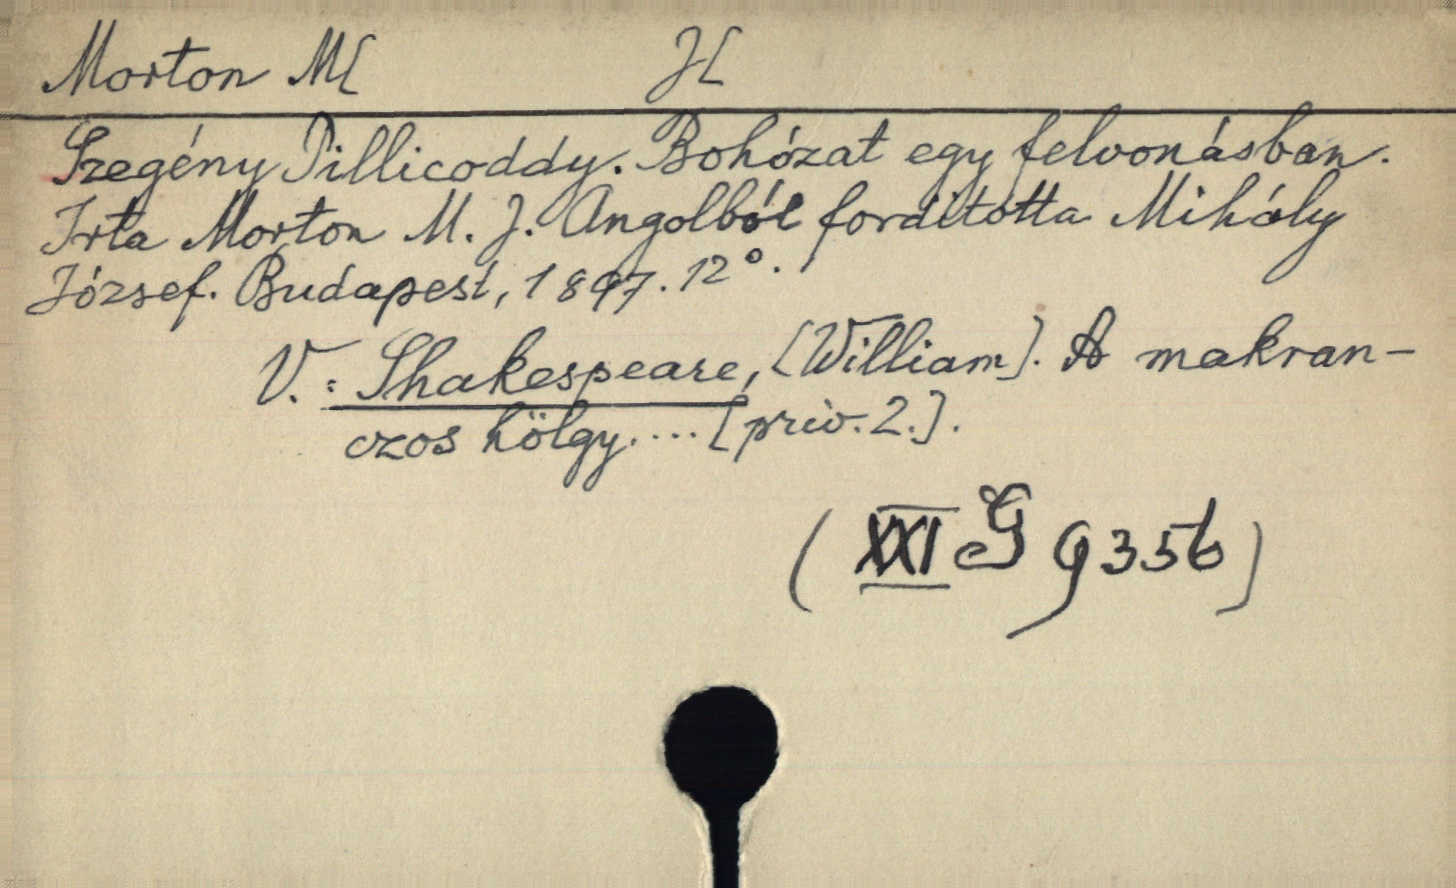 Morton M[ J[
Szegény Pillicoddy. Bohózat egy felvonásban.
Irta Morton M. J. Angolból forditotta Mihály
József. Budapest, 1897. 12°.
V.: Shakespeare, [William]. A makran-
czos hölgy.... [priv. 2.].
(XXI G 935b)